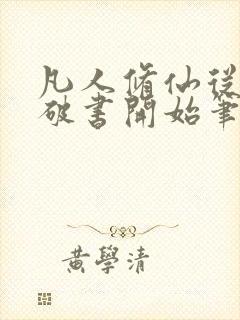 凡人脩仙從
破書開始筆
黃學清